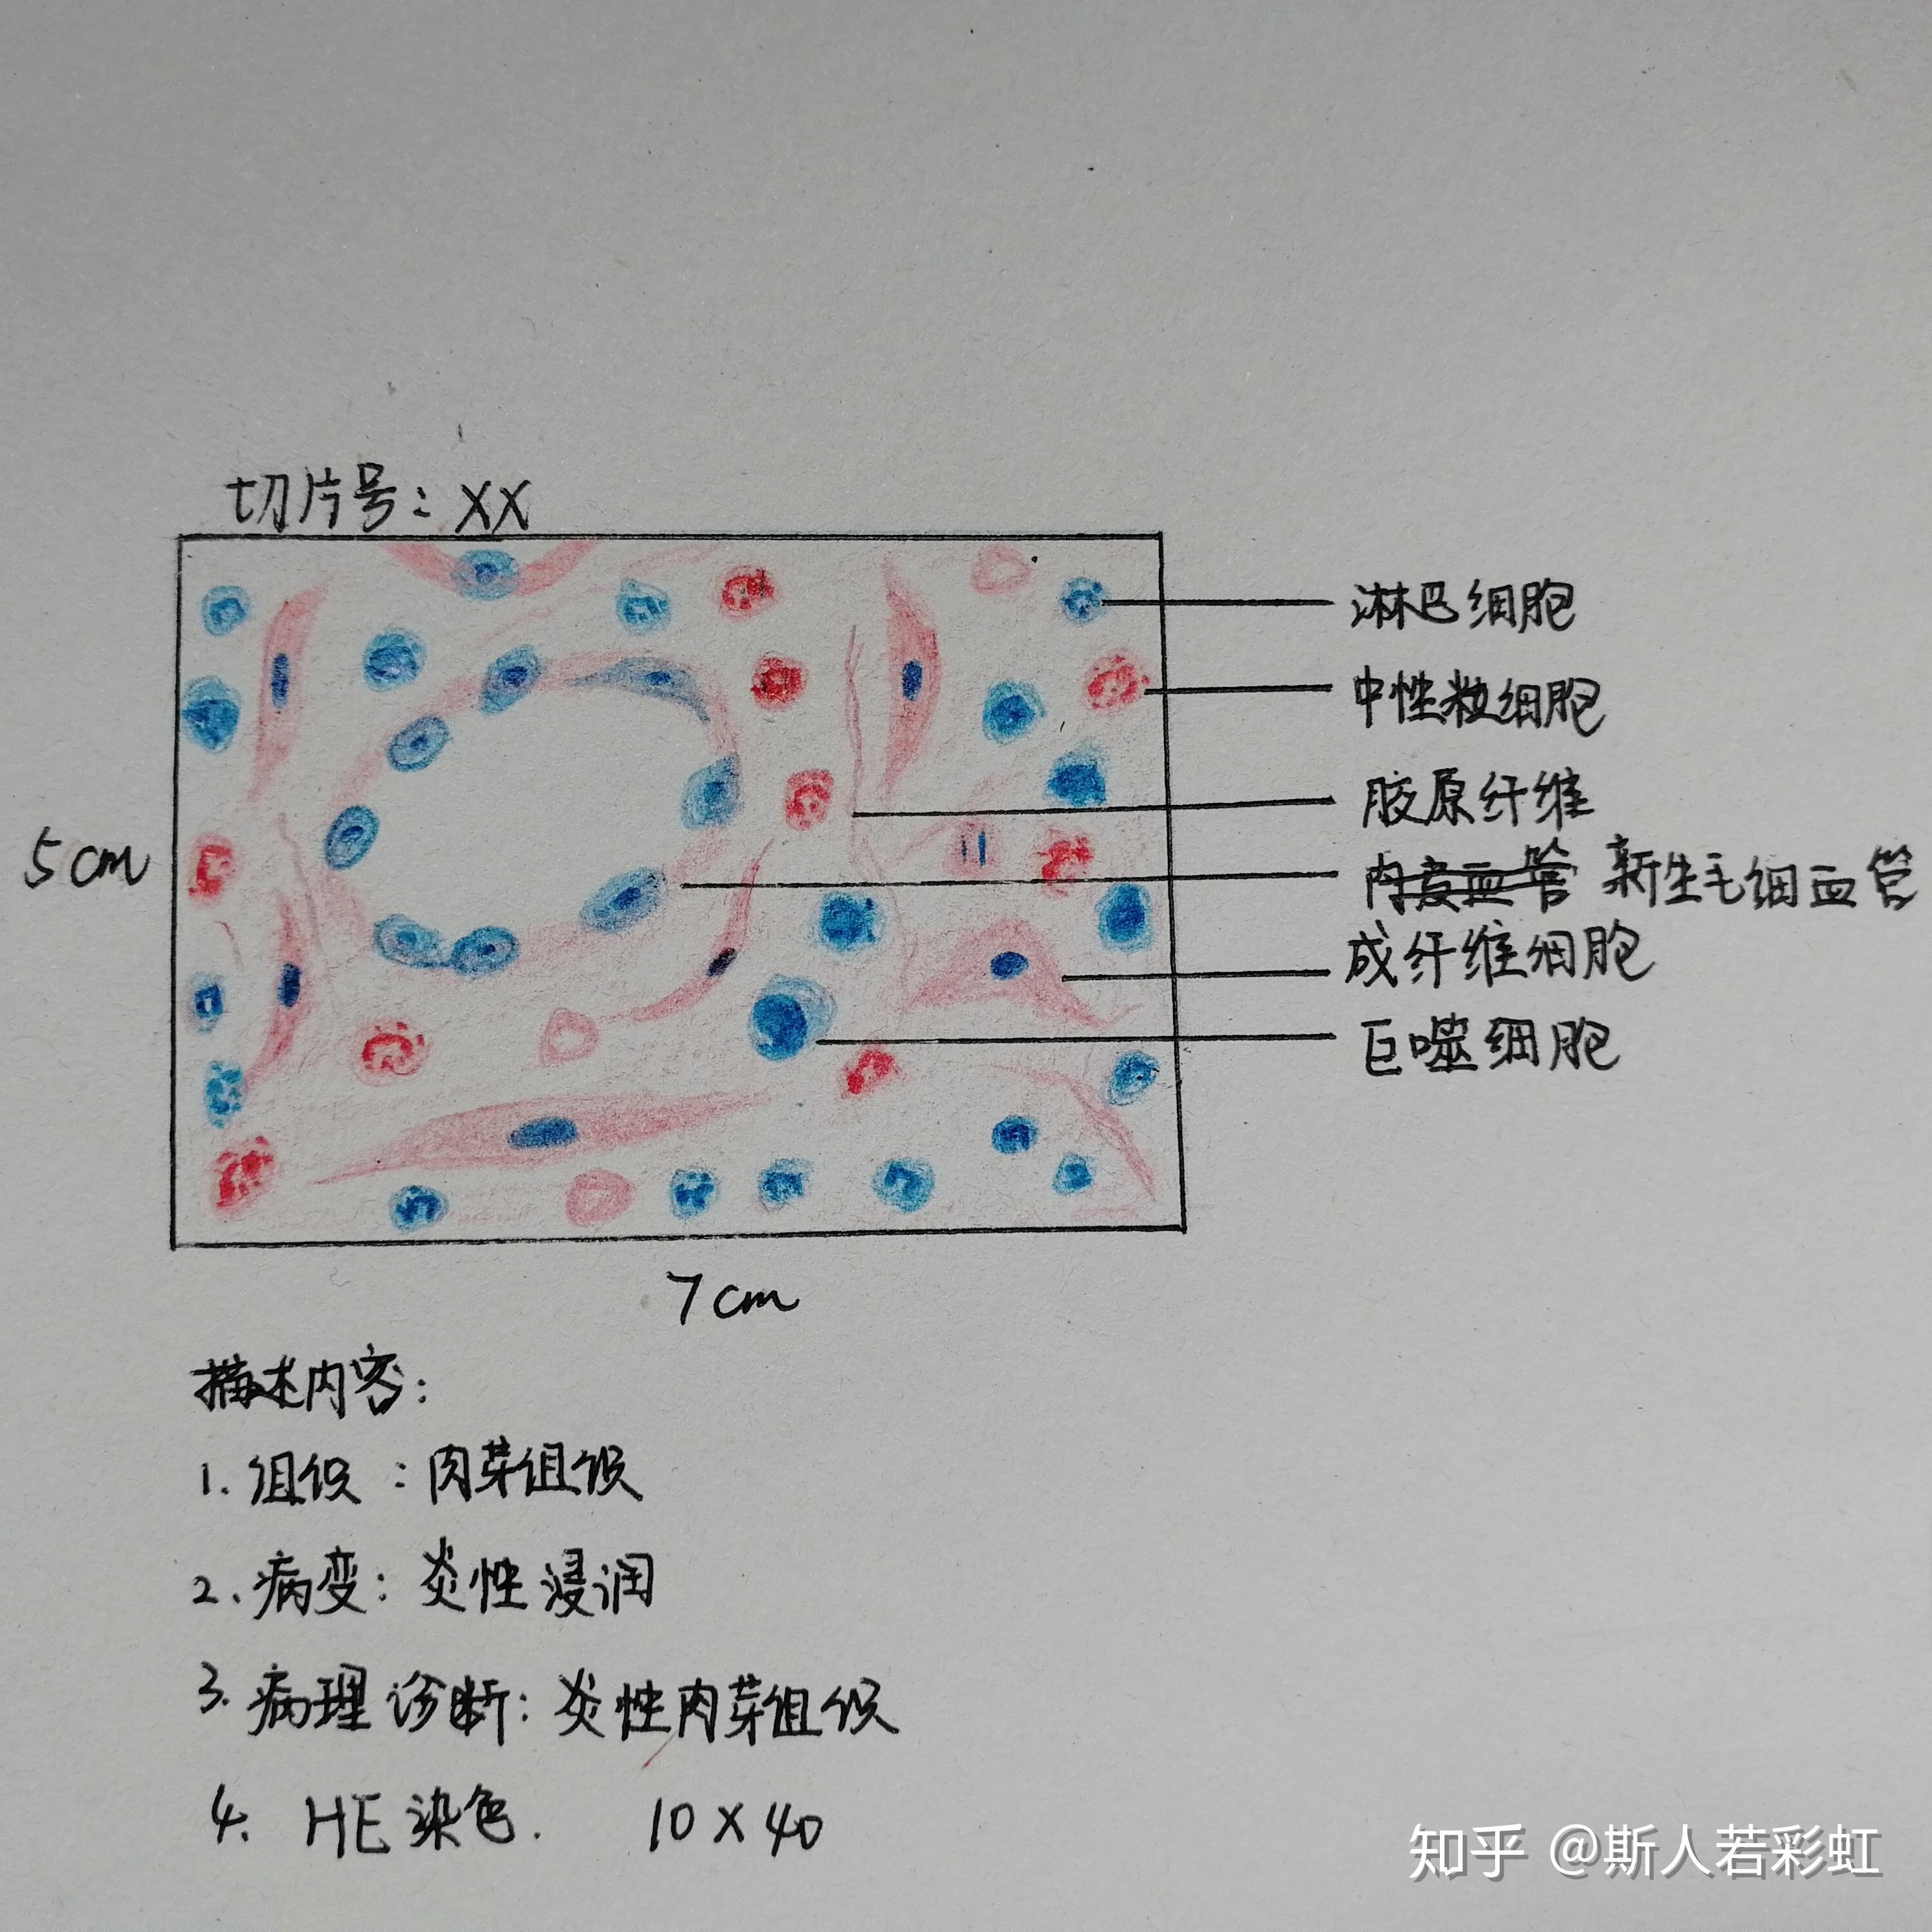 切片号：XX
淋巴细胞
中性粒细胞
胶原纤维
新生毛细血管
成纤维细胞
巨噬细胞
5cm
7cm
描述内容：
1. 组织：肉芽组织
2. 病变：炎性浸润
3. 病理诊断：炎性肉芽组织
4. HE染色. 10×40
知乎 @斯人若彩虹